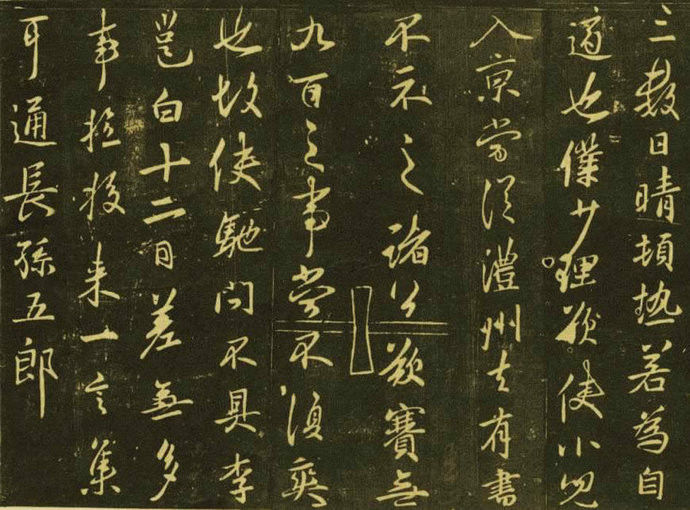 三數日晴頓热若為自
適也僕少理欲使小兒
入京當從澧州去有書
不示之諸公欲賽無
九百之事當不須爽
也故使馳問不具李
邕白十二日差無多
事來一言集
耳通長孫五郎